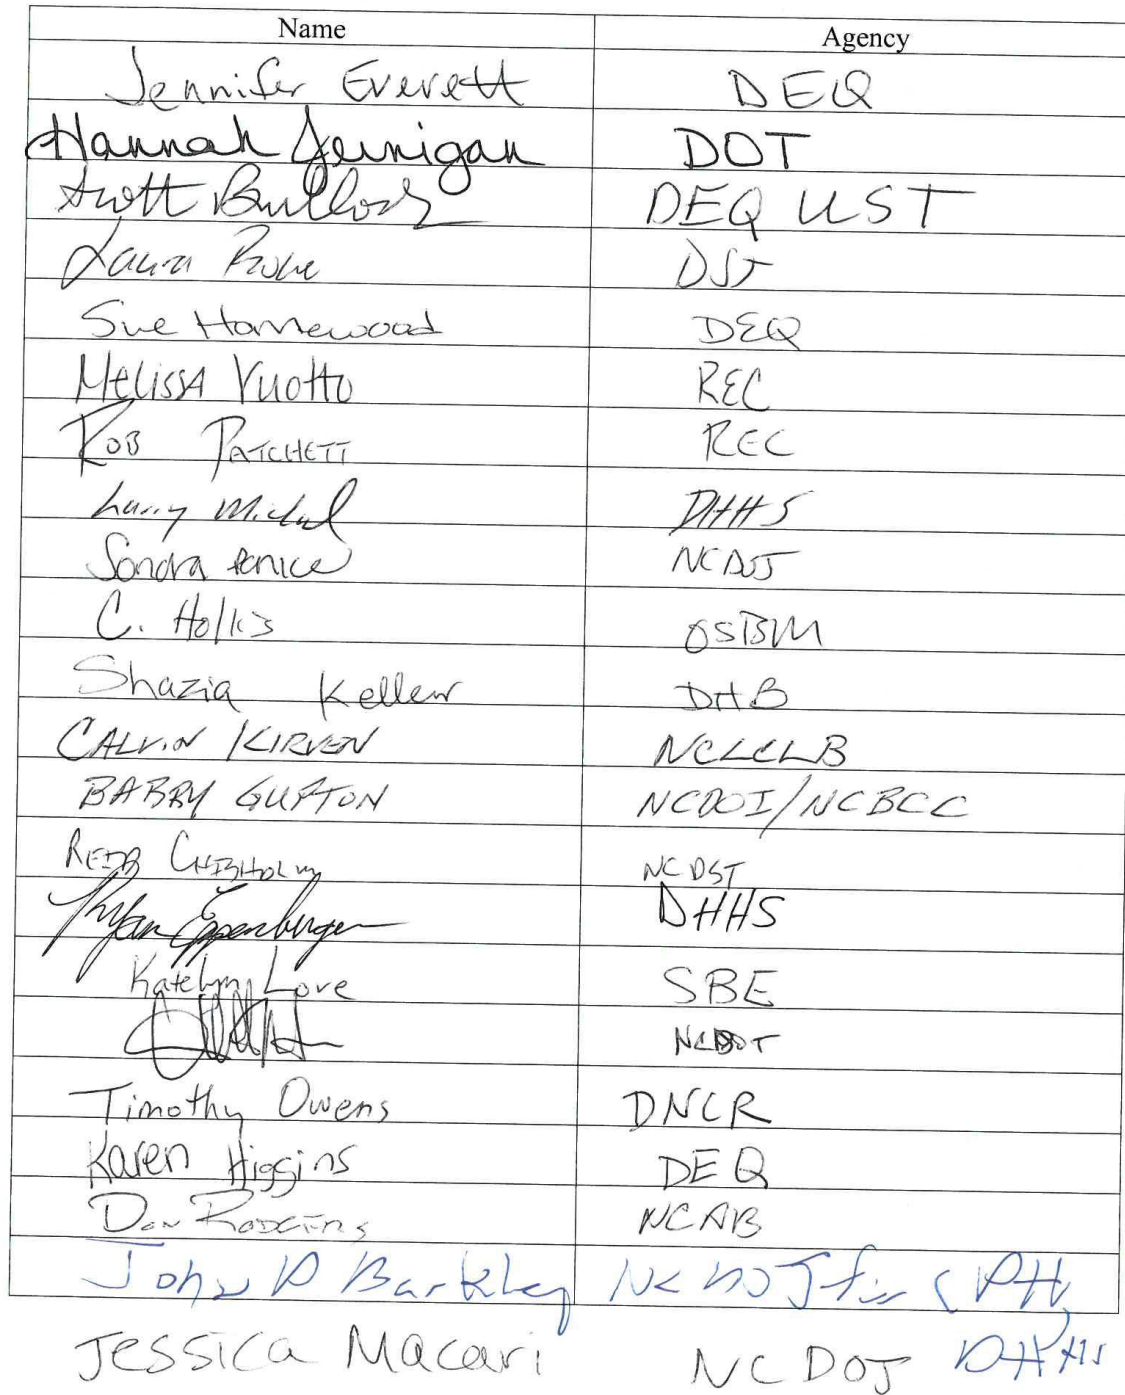 Name Agency
Jennifer Everett DEQ
Hannah Jernigan DOT
Scott Bullock DEQ UST
Laura Rowe DST
Sue Homewood DEQ
Melissa Vuotto REC
Rob Patchett REC
Larry Michael DHHS
Sondra Panico NCDOJ
C. Hollis OSBM
Shazia Keller DHB
CALVIN KIRVEN NCLCLB
BARRY GUPTON NCDOI/NCBCC
Reid Chisholm NC DST
Ryan Eppenberger DHHS
Katelyn Love SBE
NCDOT
Timothy Owens DNCR
Karen Higgins DEQ
Don Rodgers NCAB
John P Barkley NC DOJ for CPH,
Jessica Macari NC DOJ DHHS